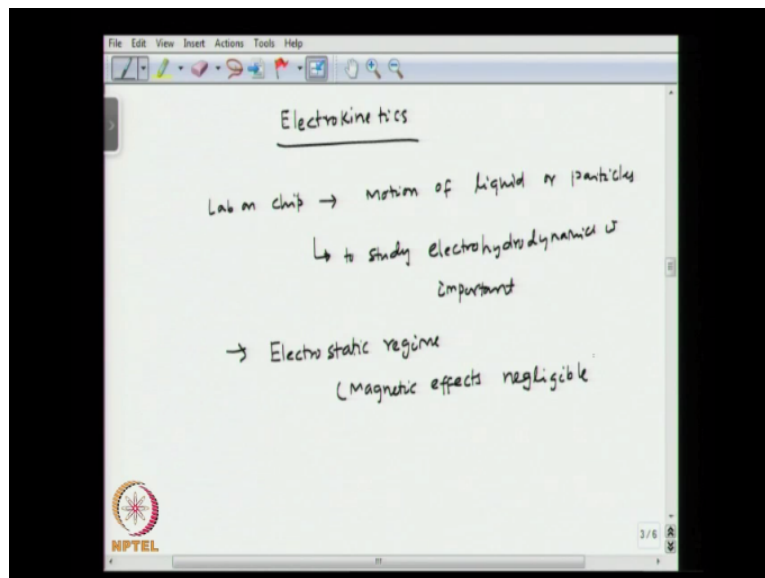 File Edit View Insert Actions Tools Help
Electrokinetics
Lab on chip → Motion of liquid or particles
↳ to study electrohydrodynamics is
important
→ Electrostatic regime
(Magnetic effects negligible
3/6
NPTEL